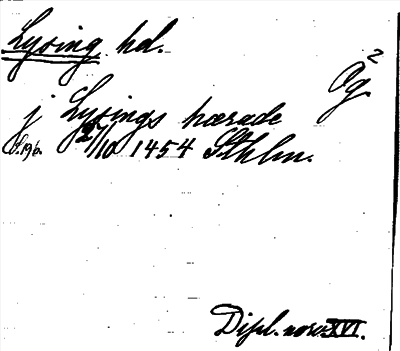 Lysing hd.
Ög 2
j Lysings hærade
S. 196. 27/10 1454 Sthlm.
Dipl. norv. XVI.